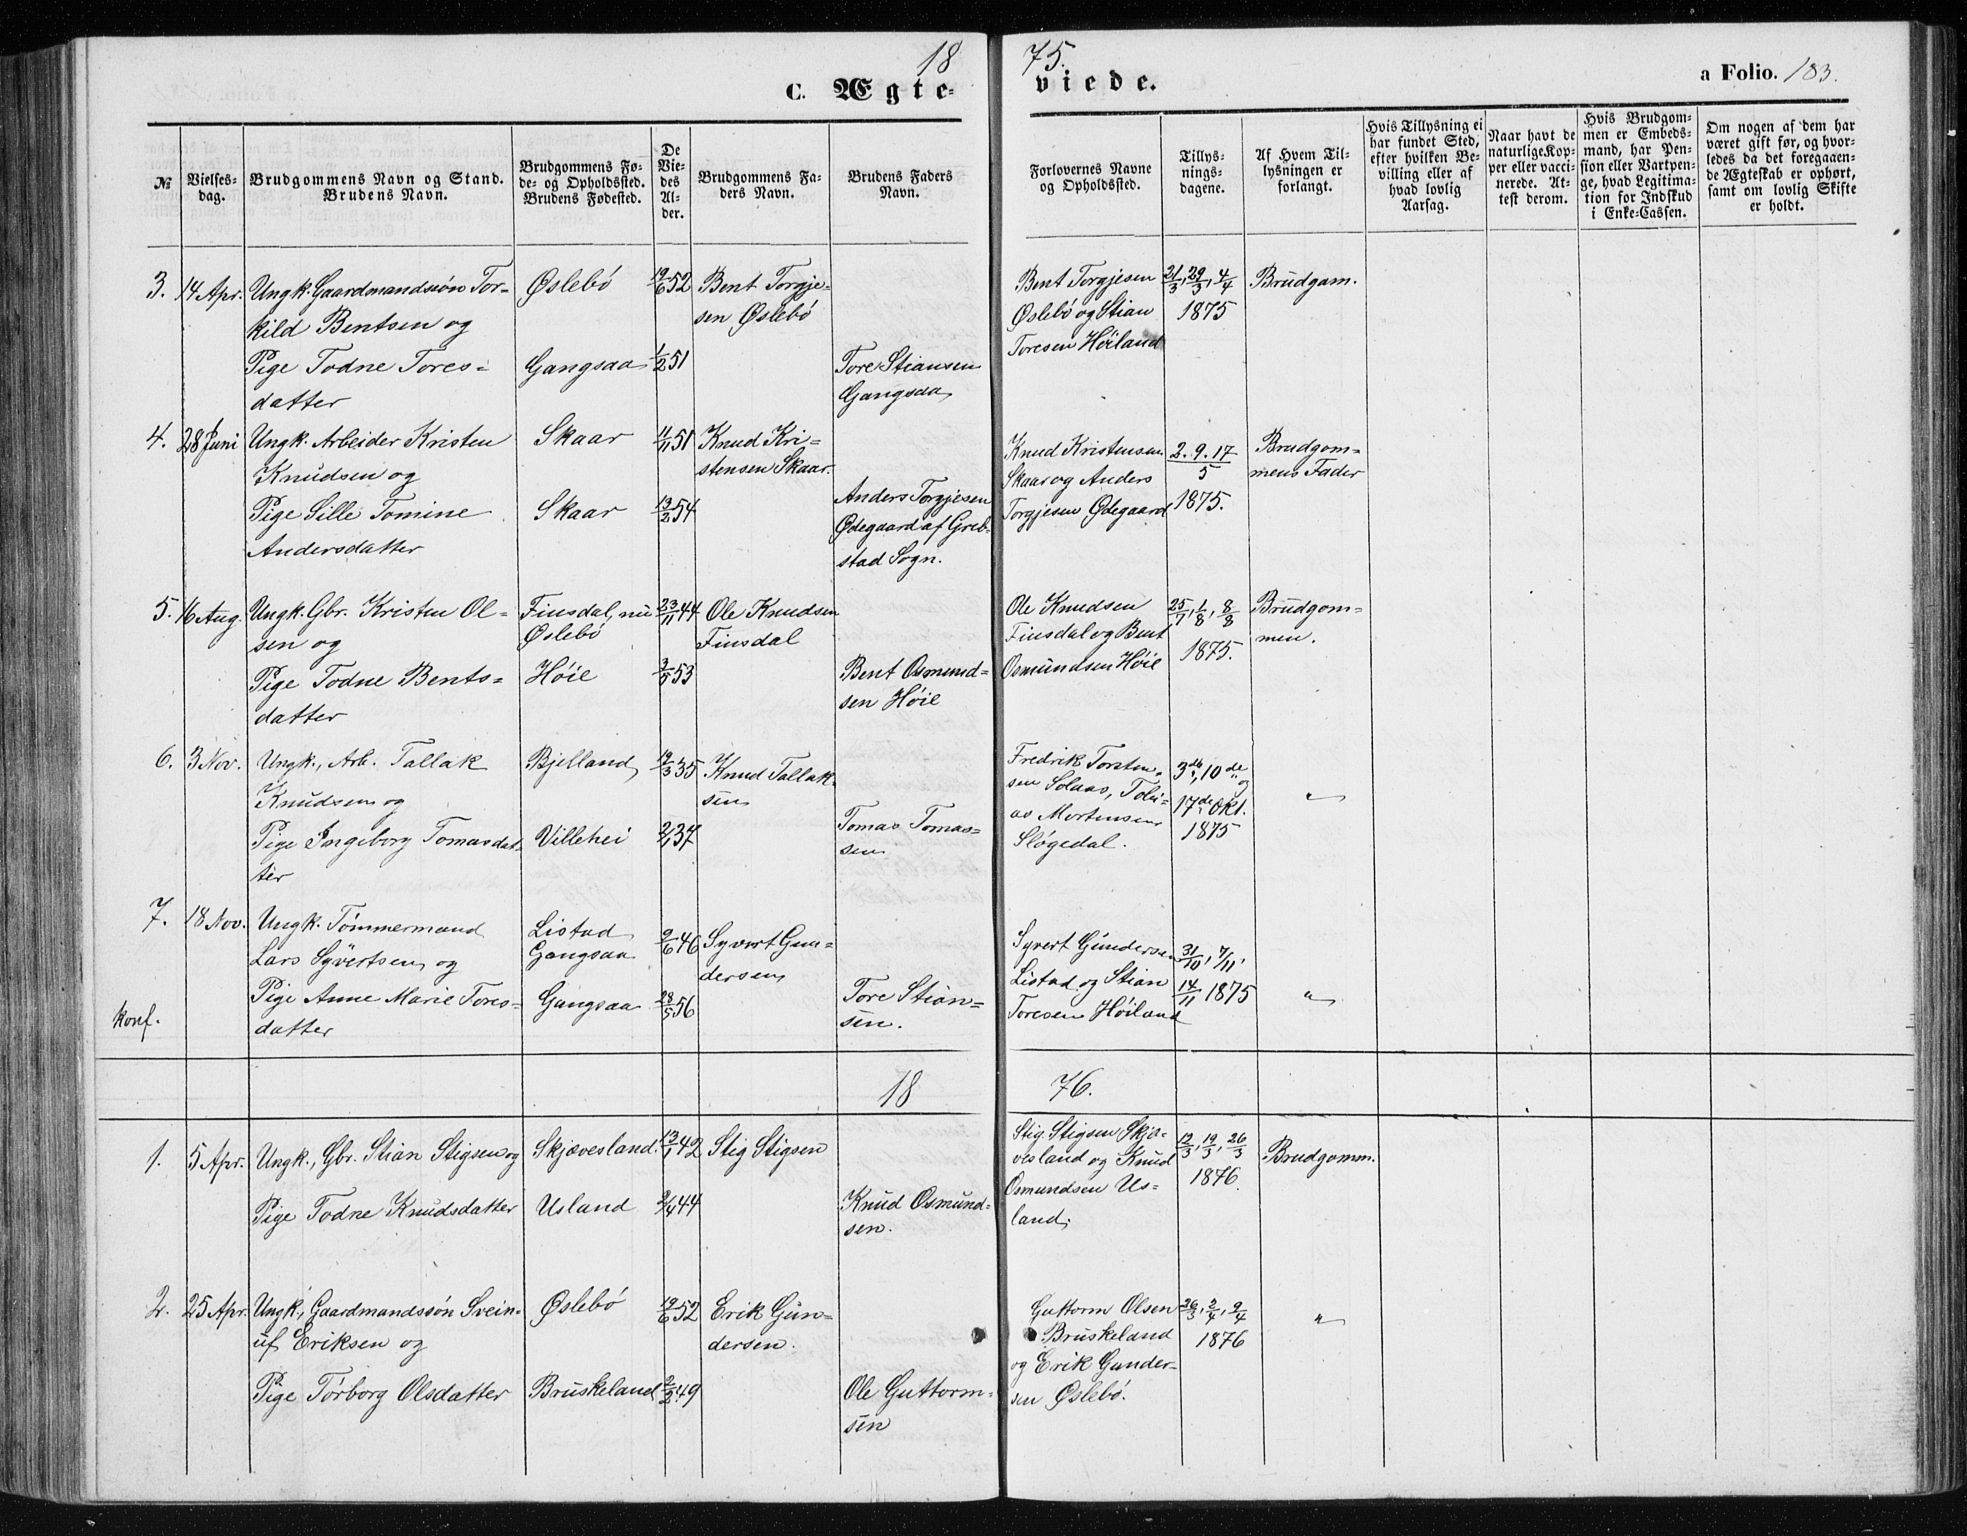 18 75.
C. Ægte-viede.
a Folio. 183.
№
Vielses-
dag.
Brudgommens Navn og Stand.
Brudens Navn.
Brudgommens Fø-
de- og Opholdssted.
Brudens Fødested.
De
Vie-
des
Al-
der.
Brudgommens Fa-
ders Navn.
Brudens Faders
Navn.
Forlovernes Navne
og Opholdssted.
Tillys-
nings-
dagene.
Af Hvem Til-
lysningen er
forlangt.
Hvis Tillysning ei
har fundet Sted,
efter hvilken Be-
villing eller af
hvad lovlig
Aarsag.
Naar havt de
naturlige Kop-
per eller vacci-
nerede. At-
test derom.
Hvis Brudgom-
men er Embeds-
mand, har Pen-
sion eller Vartpen-
ge, hvad Legitima-
tion for Indskud
i Enke-Cassen.
Om nogen af dem har
været gift før, og hvor-
ledes da det foregaaen-
de Ægteskab er ophørt,
samt om lovlig Skifte
er holdt.
3. 14 Apr. Ungk. Gaardmandssøn Tor-
kild Bentsen og
Pige Todne Tores-
datter
Øslebö
Gangsaa
19/6 52
1/2 51
Bent Torgje-
sen Øslebö
Tore Stiansen
Gangsaa
Bent Torgjesen
Øslebö og Stian
Toresen Höiland
21/3, 29/3, 4/4
1875
Brudgom.
4. 28 Juni Ungk. Arbeider Kristen
Knudsen og
Pige Sille Tomine
Andersdatter
Skaar
Skaar
11/11 51
13/2 54
Knud Kri-
stensen Skaar.
Anders Torgjesen
Ødegaard af Greb-
stad Sogn.
Knud Kristensen
Skaar og Anders
Torgjesen Ødegaard
2. 9. 17/5
1875.
Brudgom-
mens Fader
5. 16 Aug. Ungk. Gbr. Kristen Ol-
sen og
Pige Todne Bents-
datter
Finsdal, nu
Øslebö
Höie
23/11 44
3/5 53
Ole Knudsen
Finsdal
Bent Osmund-
sen Höie
Ole Knudsen
Finsdal og Bent
Osmundsen Höie
25/7, 1/8, 8/8
1875.
Brudgom-
men.
6. 3 Nov. Ungk., Arb. Tallak
Knudsen og
Pige Ingeborg Tomasdat-
ter
Bjelland
Villehei
19/3 35
2/1 37
Knud Tallak-
sen
Tomas Tomas-
sen
Fredrik Torsten-
sen Solaas, Tobi-
as Mortensen
Slögedal.
3de, 10de og
17de Okt.
1875
"
7. 18 Nov. Ungk. Tömmermand
Lars Syvertsen og
Pige Anne Marie Tores-
datter
konf.
Listad
Gangsaa
Gangsaa
2/6 46
28/5 56
Syvert Gun-
dersen
Tore Stian-
sen.
Syvert Gundersen
Listad og Stian
Toresen Höiland
31/10, 7/11,
14/11 1875
"
18 76.
1. 5 Apr. Ungk., Gbr. Stian Stigsen og
Pige Todne Knudsdatter
Skjævesland.
Usland
13/1 42
2/4 44
Stig Stigsen
Knud Osmund-
sen.
Stig Stigsen Skjæ-
vesland og Knud
Osmundsen Us-
land.
12/3, 19/3, 26/3
1876.
Brudgomm.
2. 25 Apr. Ungk., Gaardmandssön Svein-
uf Eriksen og
Pige Törborg Olsdatter
Øslebö
Bruskeland
19/6 52
2/2 49
Erik Gun-
dersen.
Ole Guttorm-
sen
Guttorm Olsen
Bruskeland
og Erik Gunder-
sen Øslebö.
26/3, 2/4, 9/4
1876
"